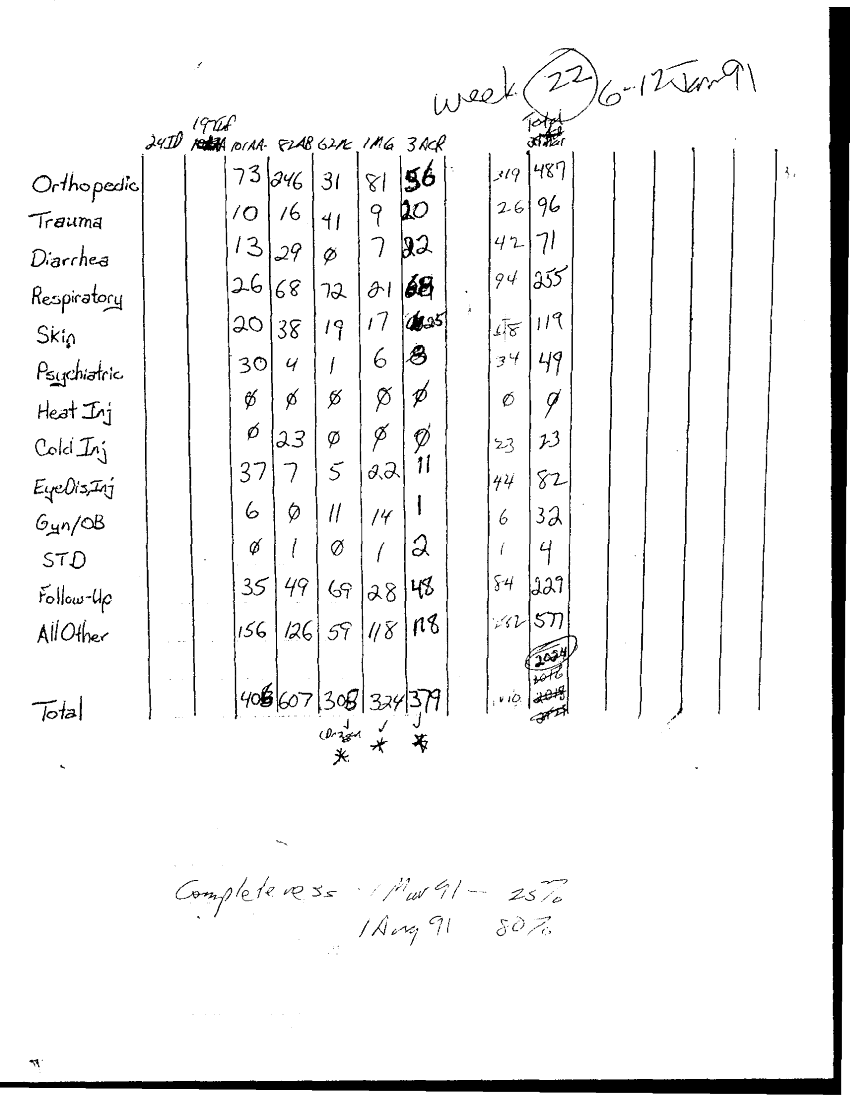 Week 22 6-12 Jan 91
24ID 101AA 82AB 1MG 3ACR Total
Orthopedic 73 246 31 81 56 319 487
Trauma 10 16 41 9 20 26 96
Diarrhea 13 29 ∅ 7 22 42 71
Respiratory 26 68 72 21 68 94 255
Skin 20 38 19 17 25 119
Psychiatric 30 4 1 6 8 34 49
Heat Inj ∅ ∅ ∅ ∅ ∅ ∅ ∅
Cold Inj ∅ 23 ∅ ∅ ∅ 23 23
EyeDis,Inj 37 7 5 22 11 44 82
Gyn/OB 6 ∅ 11 14 1 6 32
STD ∅ 1 ∅ 1 2 1 4
Follow-Up 35 49 69 28 48 84 229
All Other 156 126 59 118 118 577
2024
Total 406 607 308 324 379
* * *
Completeness 1 Mar 91 - 25%
1 Aug 91 80%